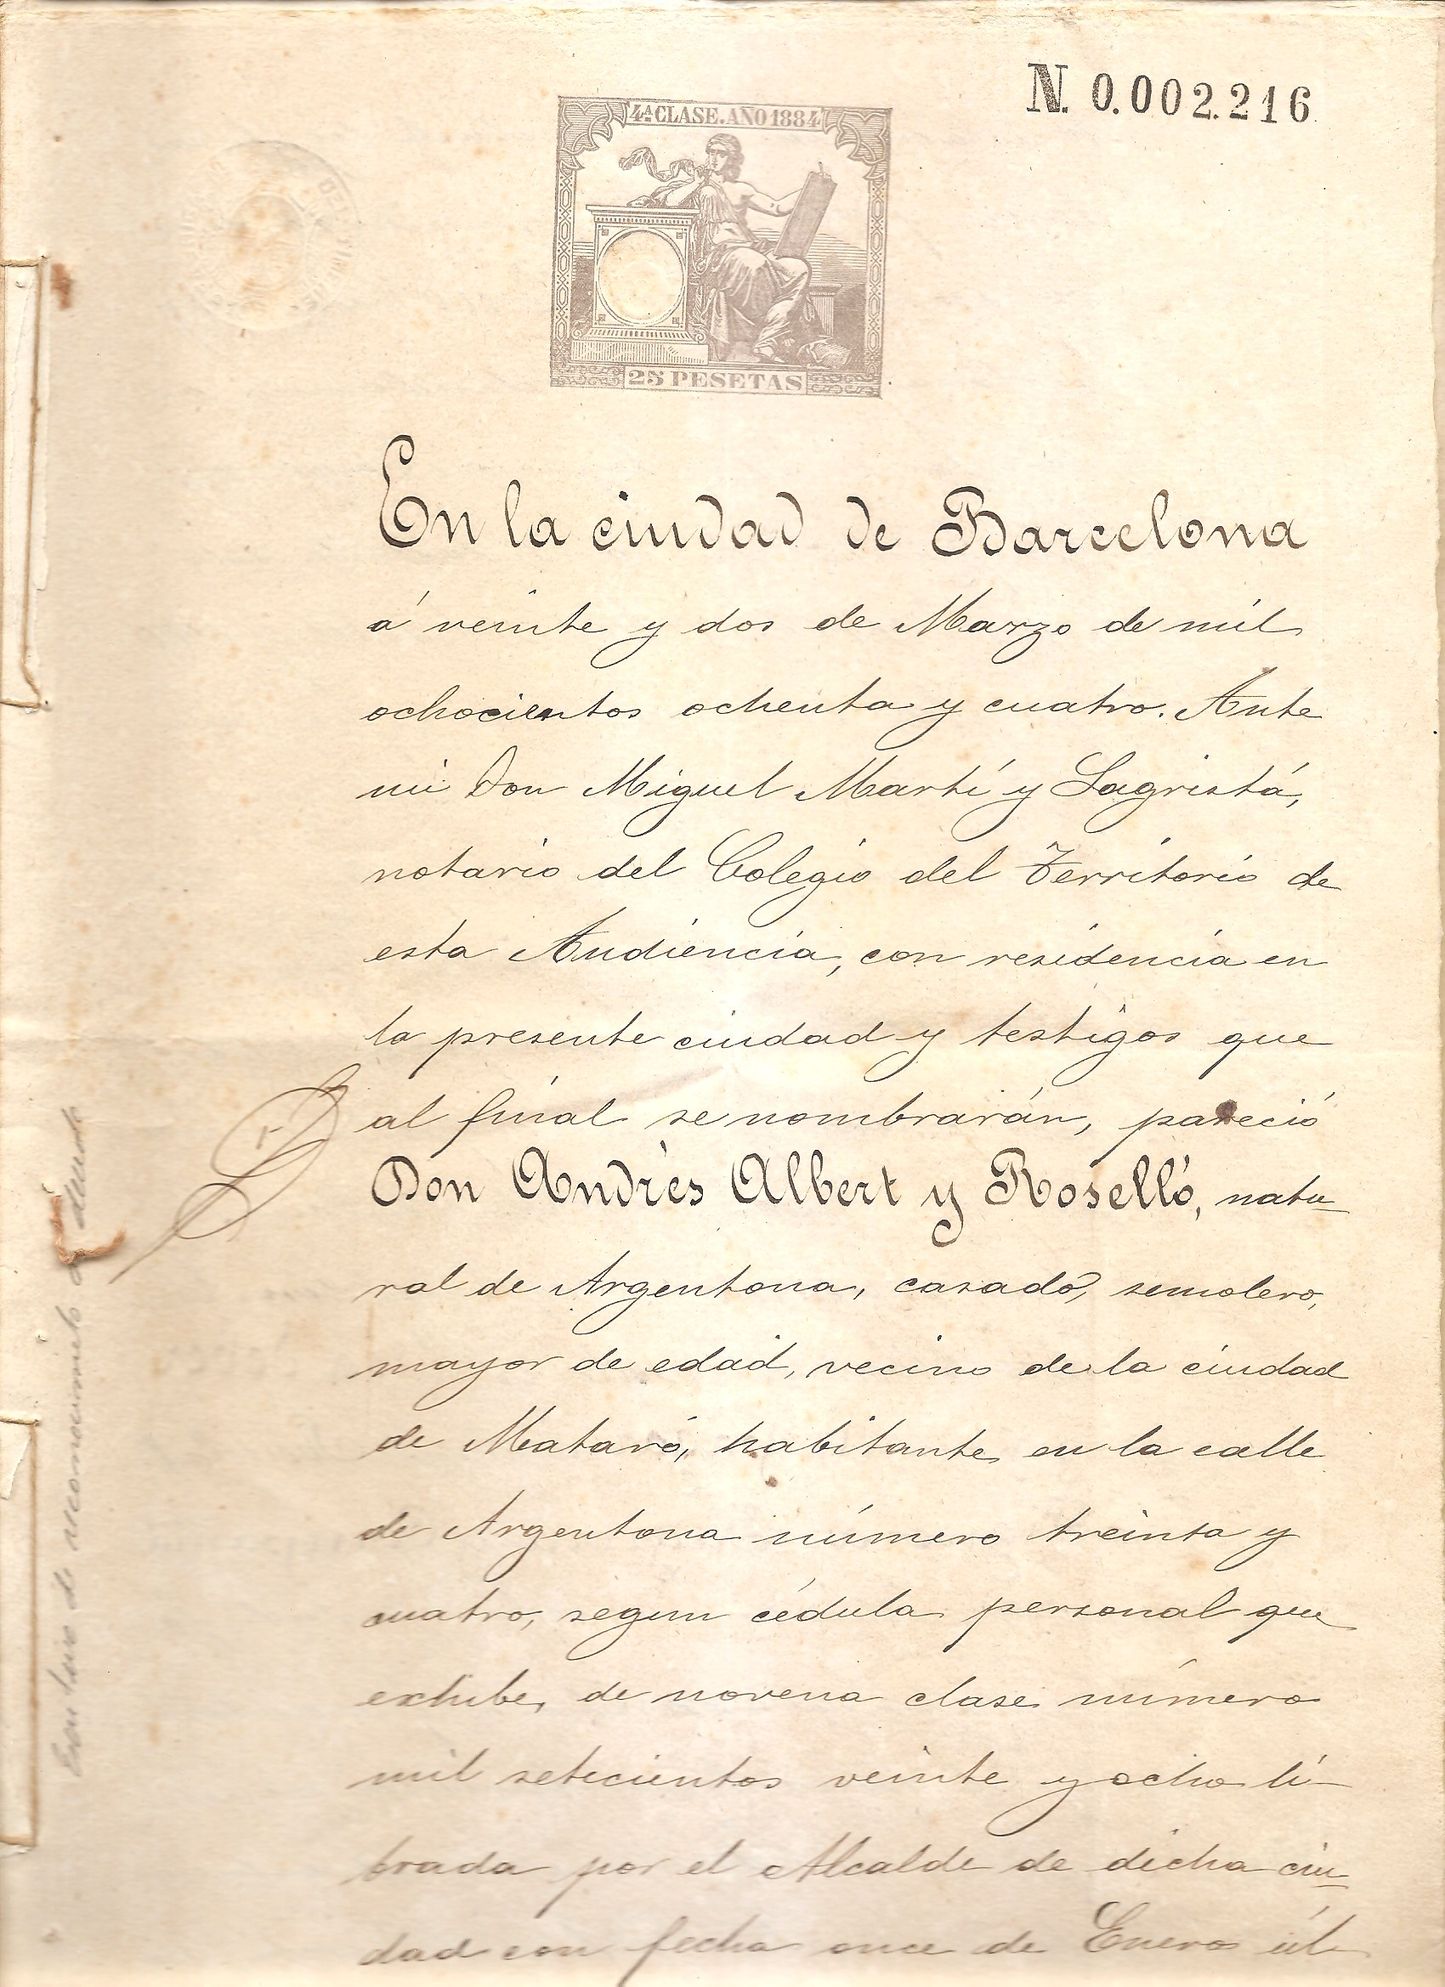 N. 0.002.216
4ª CLASE. AÑO 1884
25 PESETAS
En la ciudad de Barcelona
á veinte y dos de Marzo de mil
ochocientos ochenta y cuatro. Ante
mi Don Miguel Martí y Sagristá,
notario del Colegio del Territorio de
esta Audiencia, con residencia en
la presente ciudad y testigos que
al final se nombrarán, pareció
Don Andrés Albert y Roselló, natu-
ral de Argentona, casado, semolero,
mayor de edad, vecino de la ciudad
de Mataró, habitante en la calle
de Argentona número treinta y
cuatro, segun cédula personal que
exhibe, de novena clase número
mil setecientos veinte y ocho li-
brada por el Alcalde de dicha ciu-
dad con fecha once de Enero úl-
de reconocimiento de deuda